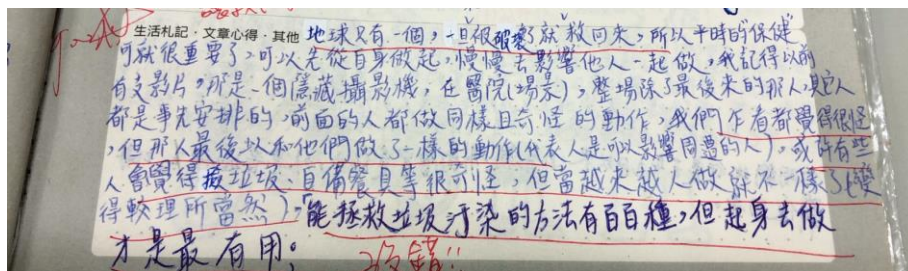 生活札記·文章心得·其他 地球只有一個,一旦被破壞了就救回來,所以平時的"保健"
可就很重要了,可以先從自身做起,慢慢去影響他人一起做,我記得以前
有支影片,那是一個隱藏攝影機,在醫院(場景),整場除了最後來的那人,其它人
都是事先安排的,前面的人都做同樣且奇怪的動作,我們乍看都覺得很怪
,但那人最後以和他們做了一樣的動作(代表人是可以影響周遭的人),或許有些
人會覺得撿垃圾、自備餐具等很奇怪,但當越來越人做就不一樣了(變
得較理所當然),能拯救垃圾汙染的方法有百百種,但起身去做
才是最有用。 沒錯!!